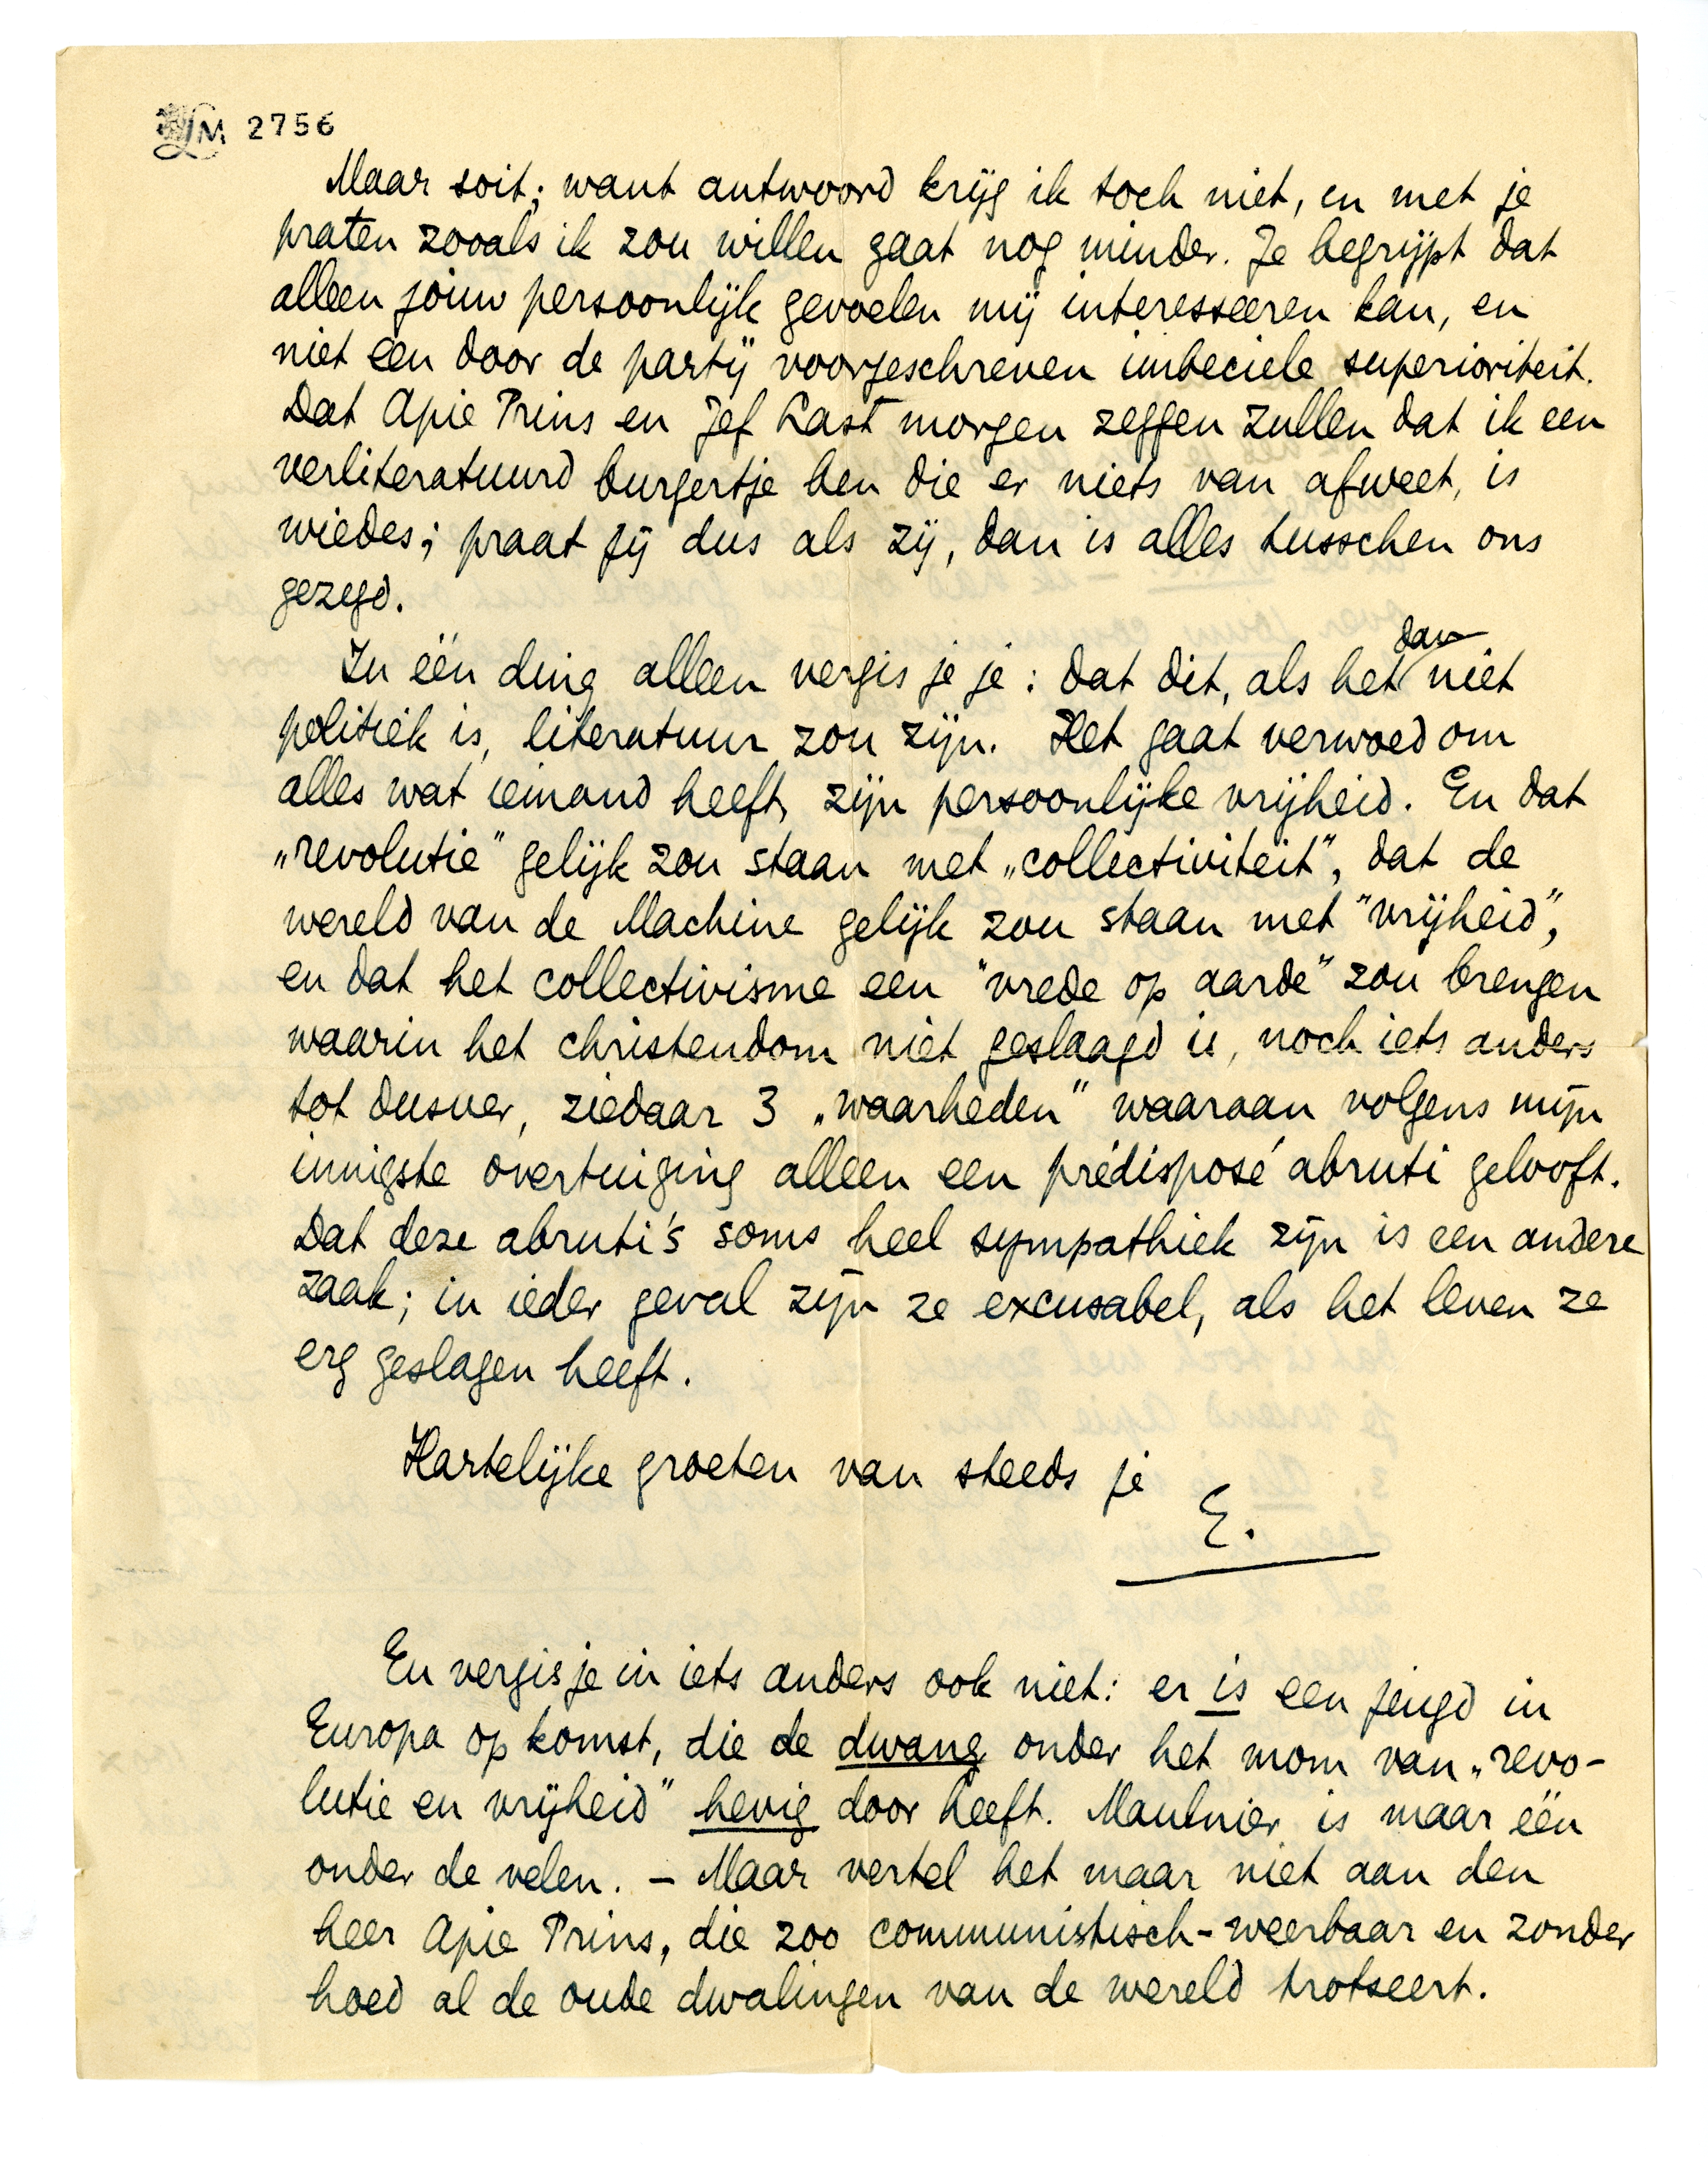 LM 2756
Maar soit; want antwoord krijg ik toch niet, en met je
praten zooals ik zou willen gaat nog minder. Je begrijpt dat
alleen jouw persoonlijk gevoelen mij interesseeren kan, en
niet een door de partij voorgeschreven imbeciele superioriteit.
Dat Apie Prins en Jef Last morgen zeggen zullen dat ik een
verliteratuurd burgertje ben die er niets van afweet, is
wiedes; praat jij dus als zij, dan is alles tusschen ons
gezegd.
In één ding alleen vergis je je: dat dit, als het dan niet
politiek is, literatuur zou zijn. Het gaat verwoed om
alles wat iemand heeft, zijn persoonlijke vrijheid. En dat
„revolutie" gelijk zou staan met „collectiviteit", dat de
wereld van de Machine gelijk zou staan met "vrijheid",
en dat het collectivisme een "vrede op aarde" zou brengen
waarin het christendom niet geslaagd is, noch iets anders
tot dusver, ziedaar 3 „waarheden" waaraan volgens mijn
innigste overtuiging alleen een prédisposé abruti gelooft.
Dat deze abruti's soms heel sympathiek zijn is een andere
zaak; in ieder geval zijn ze excusabel, als het leven ze
erg geslagen heeft.
Hartelijke groeten van steeds je
E.
En vergis je in iets anders ook niet: er is een jeugd in
Europa op komst, die de dwang onder het mom van „revo-
lutie en vrijheid" hevig door heeft. Maulnier is maar één
onder de velen. – Maar vertel het maar niet aan den
heer Apie Prins, die zoo communistisch-weerbaar en zonder
hoed al de oude dwalingen van de wereld trotseert.